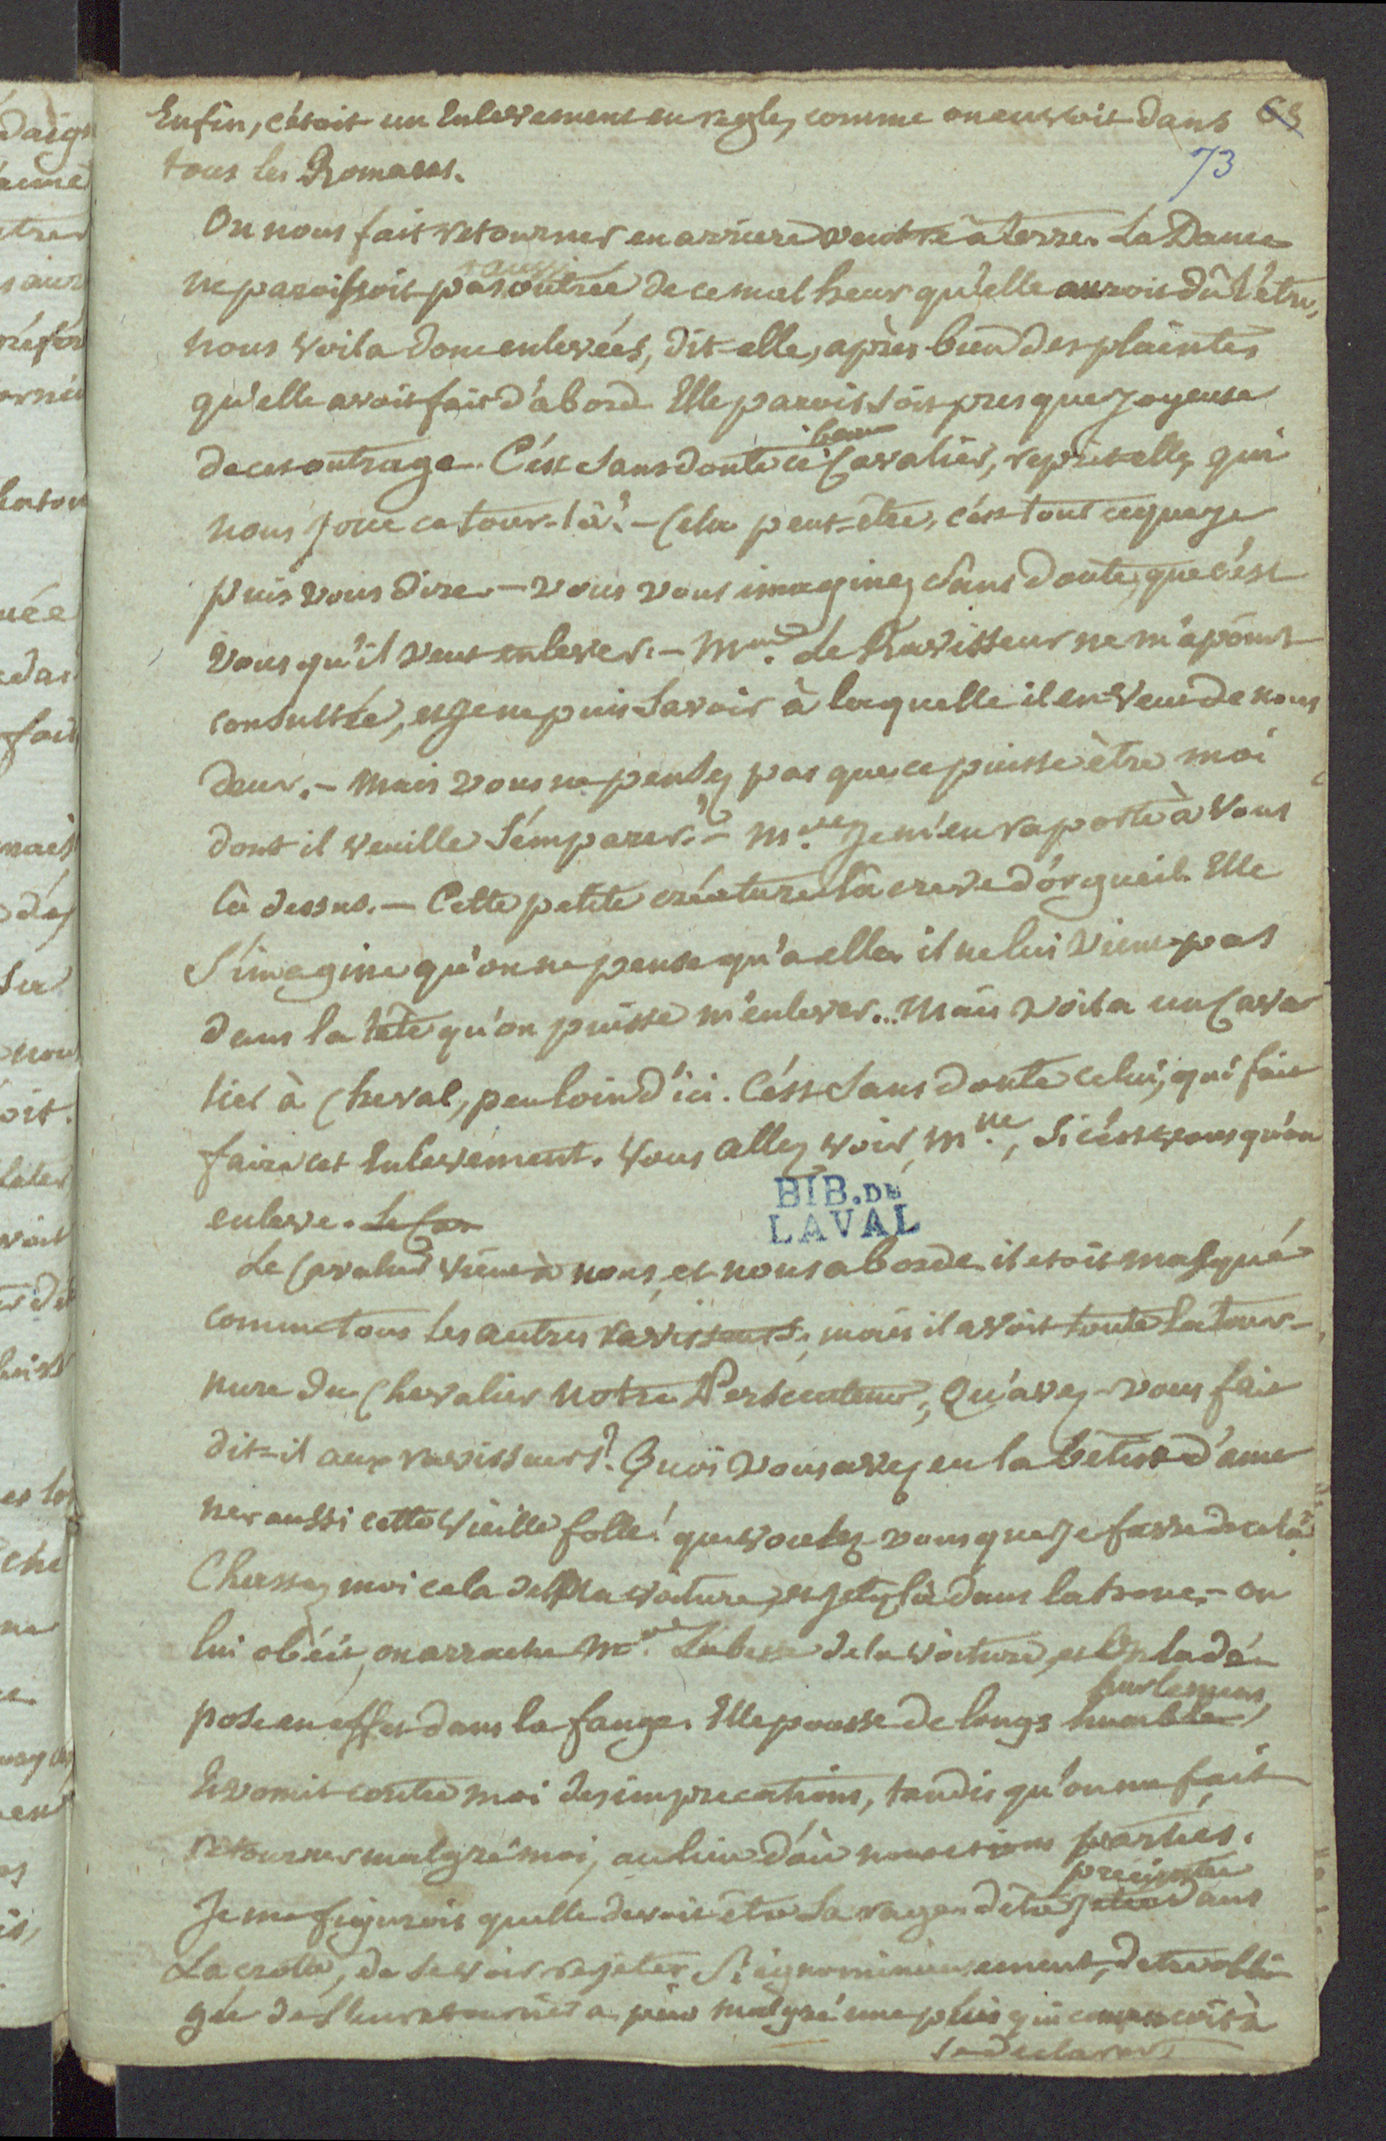 Enfin, c'étoit un Enlevement en regle, comme on en voit dans 65
tous les Romans. 73
On nous fait retourner en arriere ventre à terre. La Dame
ne paroissoit pas aussi outrée de ce malheur qu'elle auroit dû l'être,
nous voila donc enlevées, dit-elle, après bien des plaintes
qu'elle avoit fait d'abord. Elle paroissoit presque joyeuse
de cet outrage. C'est sans doute ce beau Cavalier, reprit elle, qui
nous joue ce tour-là? - Cela peut-être, c'est tout ce que je
puis vous dire. - vous vous imaginez sans doute, que c'est
vous qu'il veut enlever. - Mme. le Ravisseur ne m'a point
consultée, et je ne puis savoir à laquelle il en veut de nous
deux. - Mais vous ne pensez pas que ce puisse être moi
dont il veuille s'emparer? - Mme je m'en raporte à vous
là dessus. - Cette petite créature là creve d'orgueil. Elle
s'imagine qu'on ne pense qu'a elle. il ne lui vient pas
dans la tête qu'on puisse m'enlever... Mais voila un Cava
lier à Cheval, peu loin d'ici. C'est sans doute celui, qui fait
faire cet Enlevement. Vous allez voir, Mlle., si c'est vous qu'on
enleve. Le Cav
BIB. DE
LAVAL
Le Cavalier vient à nous, et nous aborde. il etoit masqué
comme tous les autres ravisseurs, mais il avoit toute la tour-
nure du Chevalier notre Persecuteur, Qu'avez-vous fait
dit-il aux ravisseurs? Quoi vous avez eu la bêtise d'ame
ner aussi cette vieille folle! que voulez vous que je fasse de cela?
Chassez moi cela de la voiture, et jetez là dans la boue. - on
lui obéit, on arrache Mme. de la voiture, et on la dé-
pose en effet dans la fange. Elle pousse de longs hurlemens,
Et vomit contre moi des imprecations, tandis qu'on me fait
retourner malgré moi, au lieu d'où nous etions parties.
Je me figurois quelle devoit être sa rage. d'être jetée dans
La crotte, de se voir rejeter si ignominieusement, d'etre obli
gée de s'en retourner a pied malgré une pluie qui commencoit à
se declarer